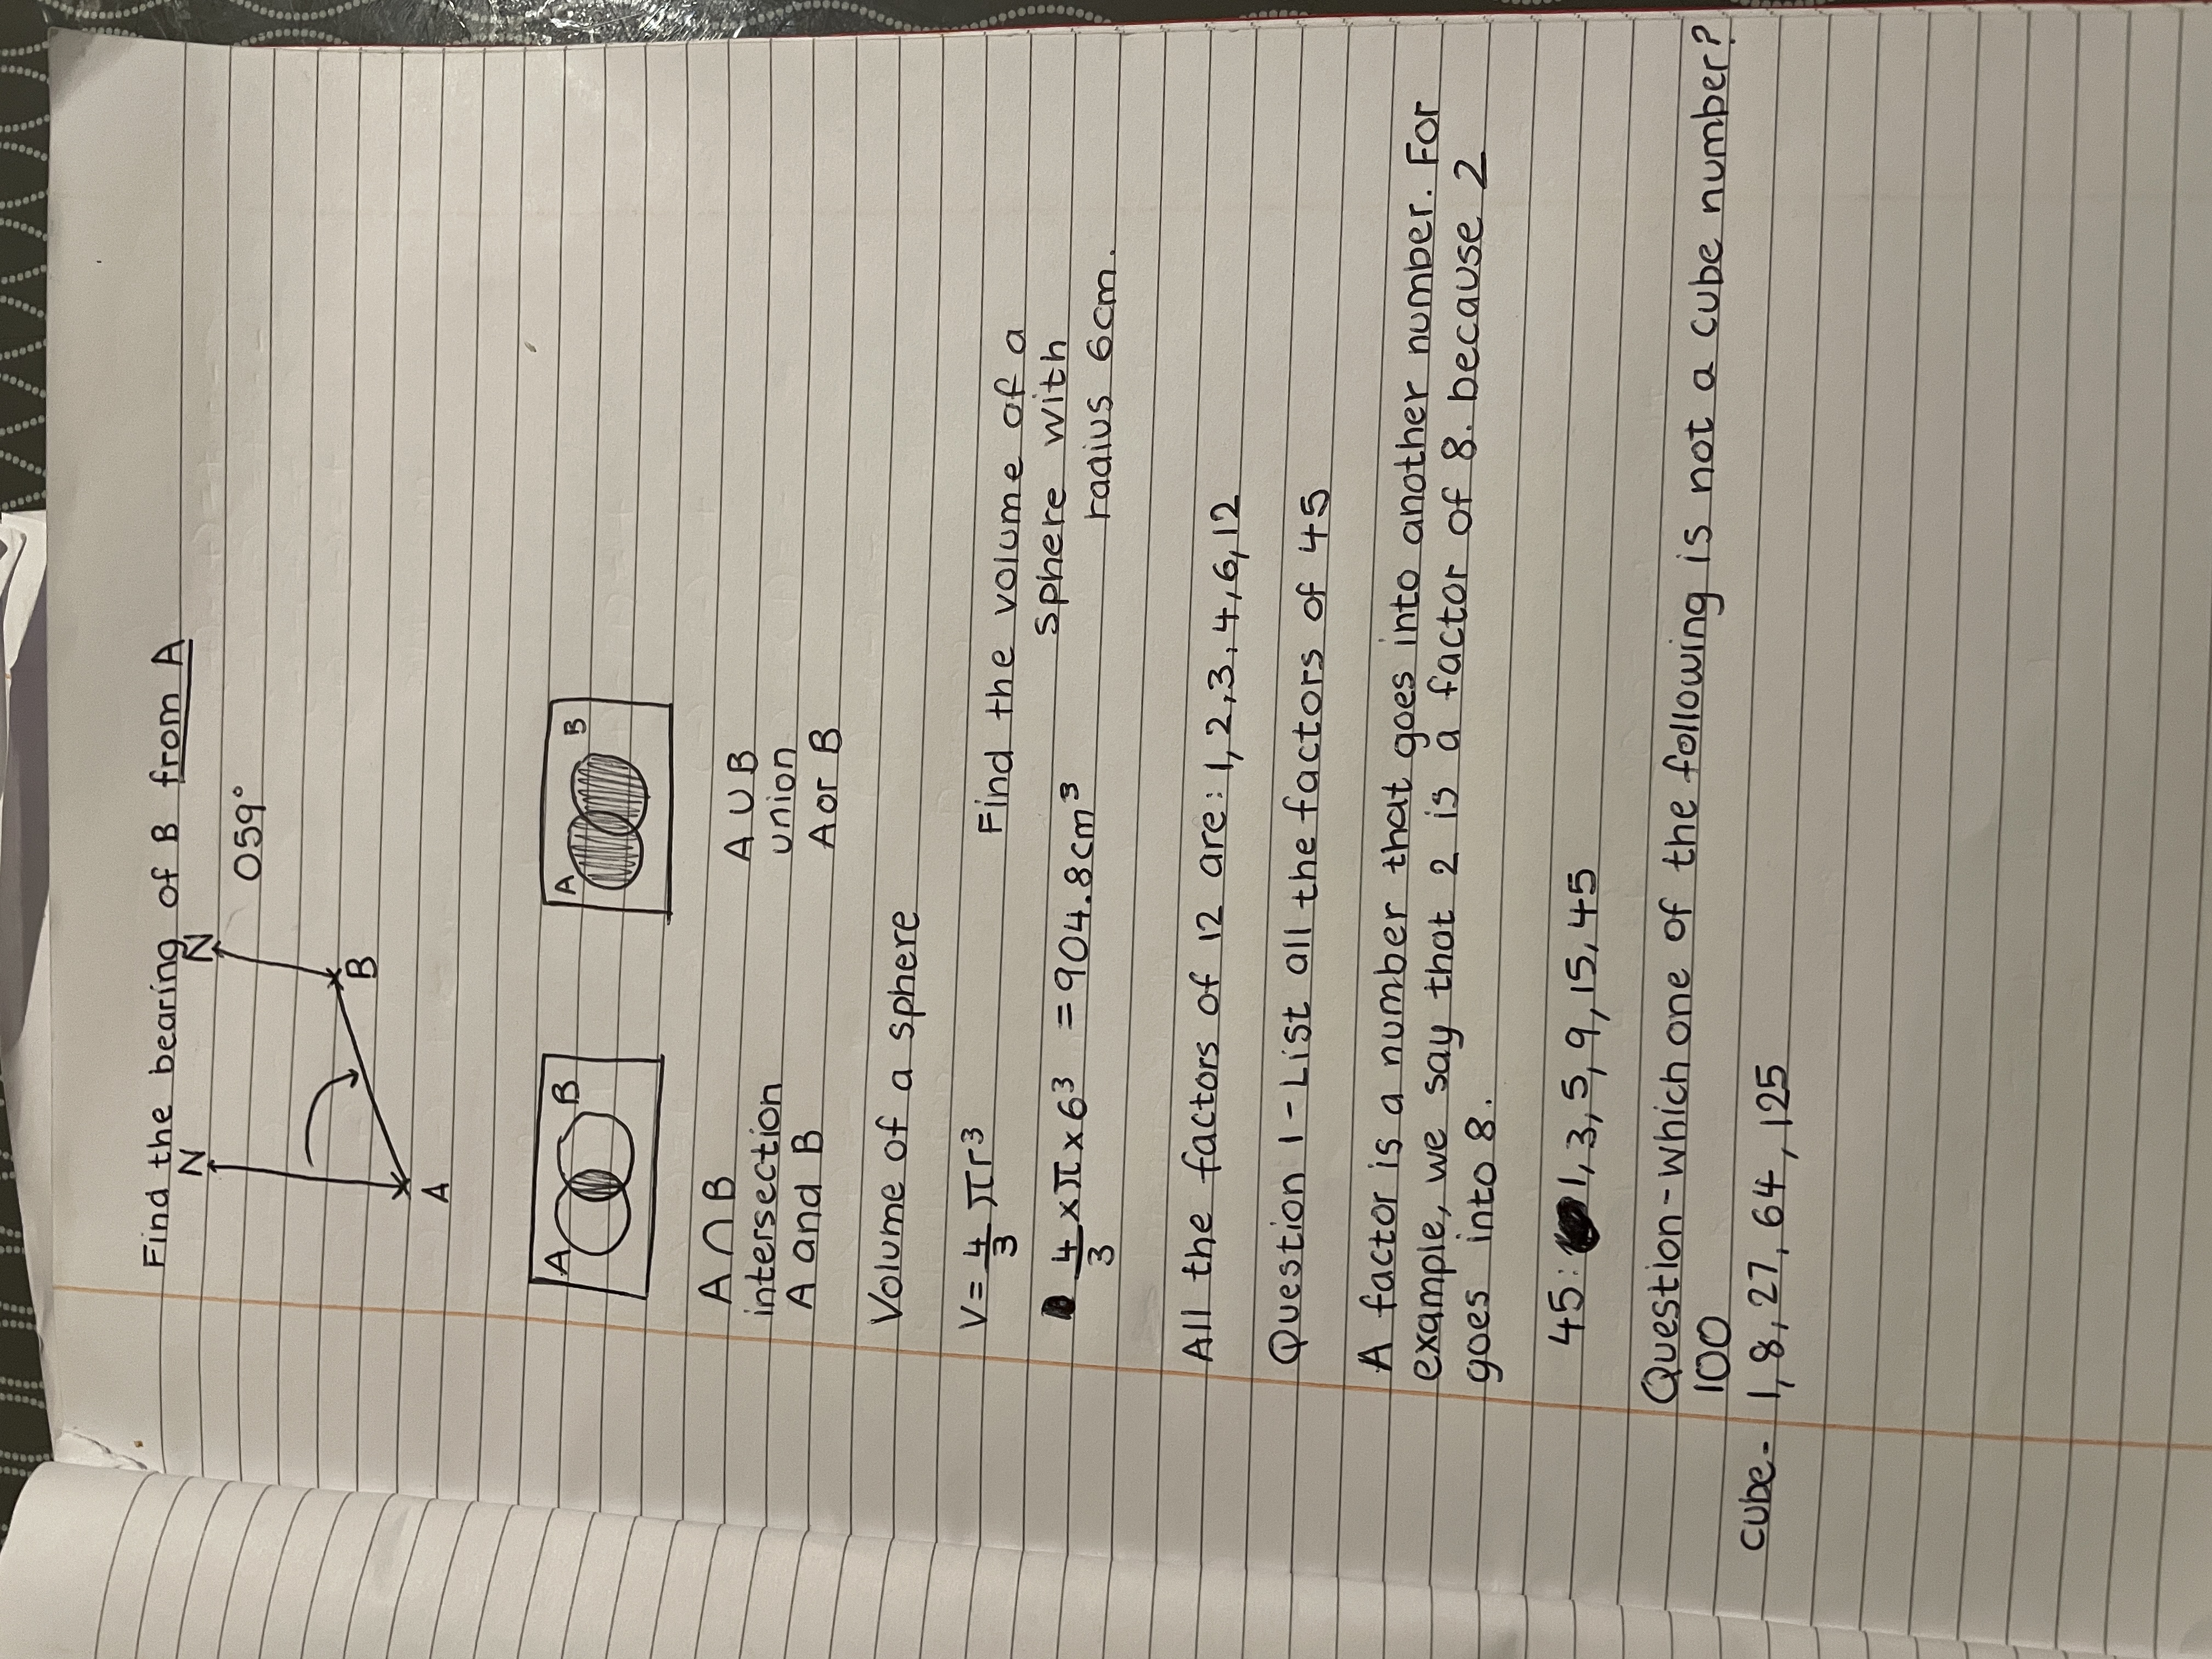 Find the bearing of B from A
N N
059°
B
A
A B
A B
A ∩ B A ∪ B
intersection union
A and B A or B
Volume of a sphere
V = 4/3 πr³
Find the volume of a
sphere with
radius 6cm.
4/3 × π × 6³ = 904.8cm³
All the factors of 12 are: 1, 2, 3, 4, 6, 12
Question 1 - List all the factors of 45
A factor is a number that goes into another number. For
example, we say that 2 is a factor of 8. because 2
goes into 8.
45: 1, 3, 5, 9, 15, 45
Question - Which one of the following is not a cube number?
100
cube - 1, 8, 27, 64, 125